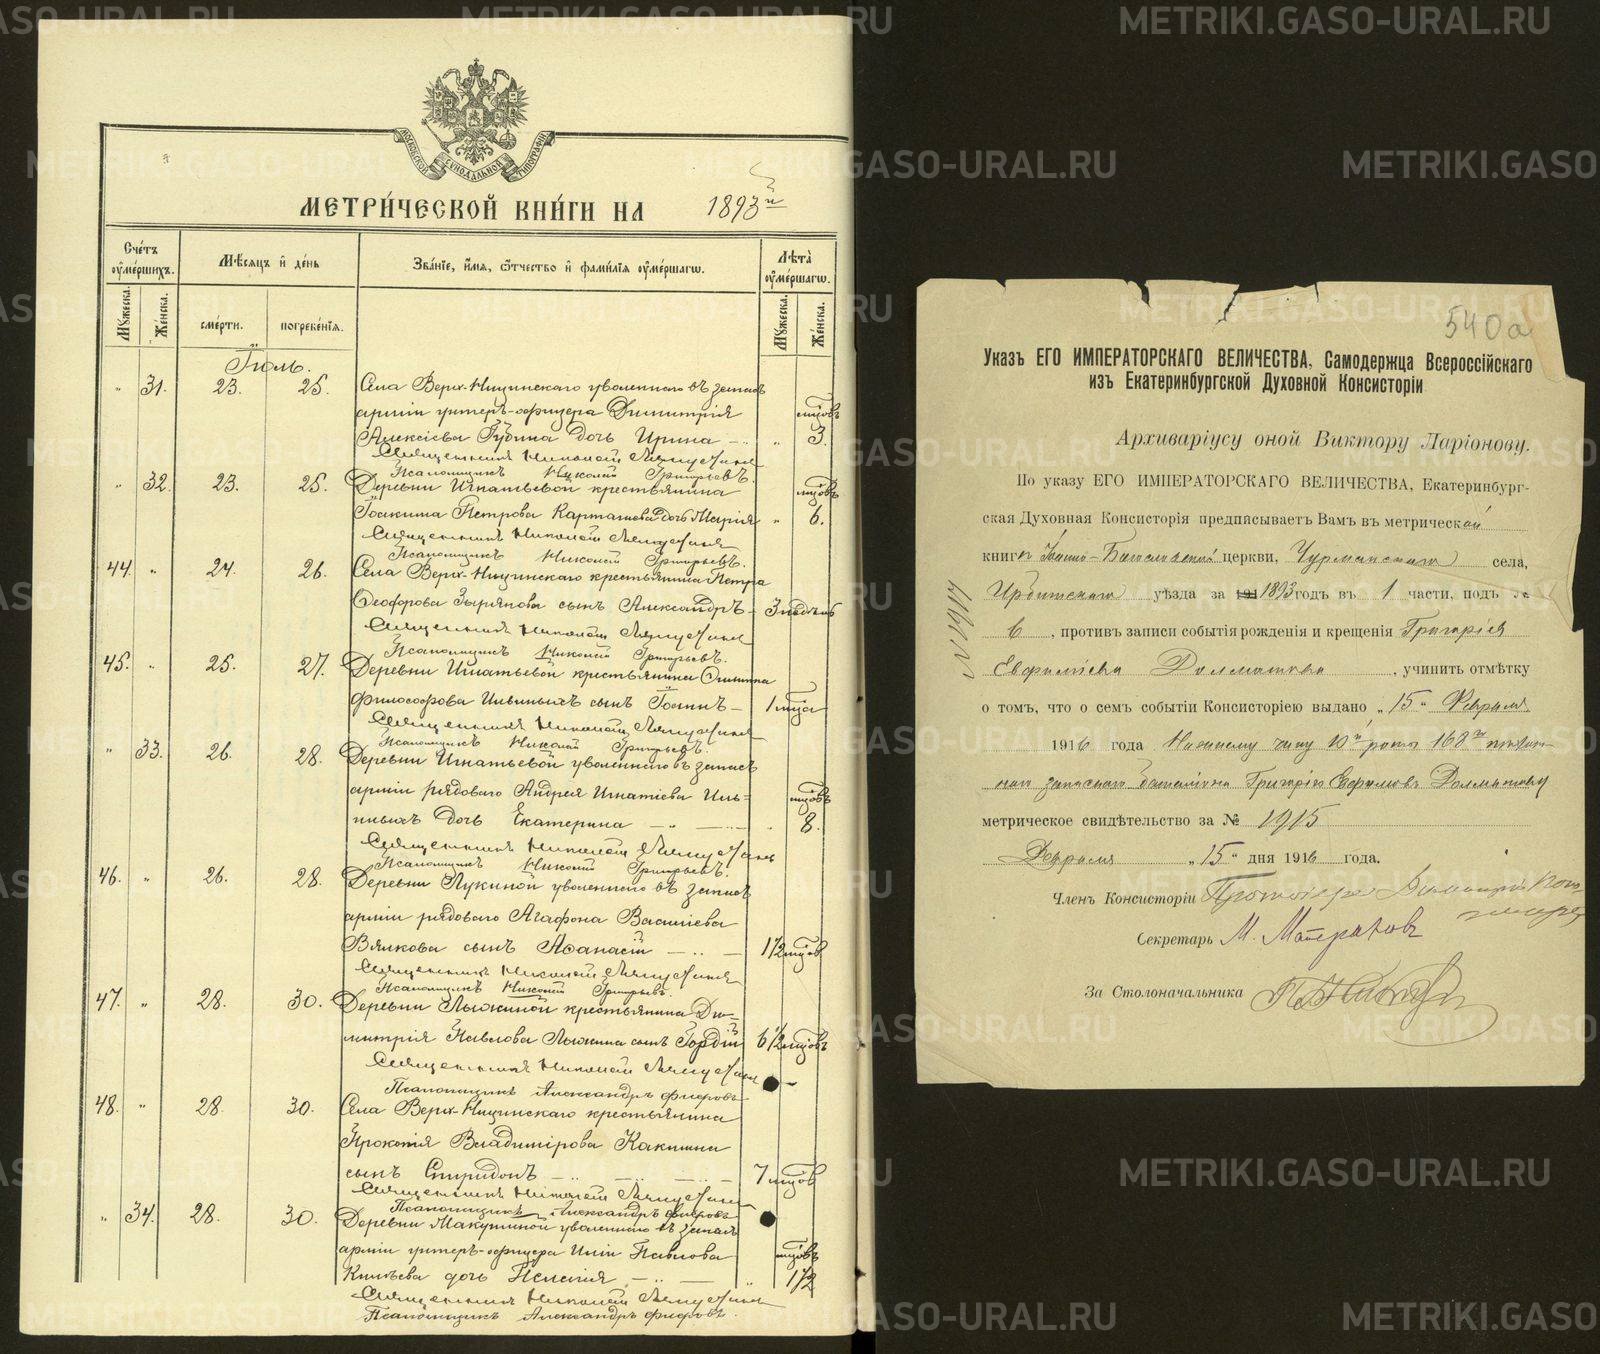 МОСКОВСКОЙ СѴНОДАЛЬНОЙ ТИПОГРАФІИ
МЕТРИ́ЧЕСКОЙ КНИ́ГИ НА 1893й
Сче́тъ ᲂу҆ме́ршихъ.
Мѣ́сяцъ и҆ де́нь
Зва́нїе, и҆́мя, ѻ҆́тчество и҆ фами́лїя ᲂу҆ме́ршагѡ.
Лѣ́та ᲂу҆ме́ршагѡ.
Мꙋ́жеска.
Же́нска.
сме́рти.
погребе́нїя.
Мꙋ́жеска.
Же́нска.
Іюль.
" 31. 23. 25. Села Верх-Ницинскаго уволеннаго въ запасъ
арміи унтеръ-офицера Димитрія мцовъ
Алексіева Губина дочь Ирина " 3.
Священникъ Николай
Псаломщикъ Николай Григорьевъ.
" 32. 23. 25. Деревни Игнатьевой крестьянина мцовъ
Іоакима Петрова Карташева дочь Марія " 6.
Священникъ Николай
Псаломщикъ Николай Григорьевъ.
44. " 24. 26. Села Верх-Ницинскаго крестьянина Петра
Ѳеодорова Зырянова сынъ Александръ 3 недѣль
Священникъ Николай
Псаломщикъ Николай Григорьевъ.
45. " 25. 27. Деревни Игнатьевой крестьянина
Философова сынъ Іоаннъ 1 мцъ
Священникъ Николай
Псаломщикъ Николай Григорьевъ.
" 33. 26. 28. Деревни Игнатьевой уволеннаго въ запасъ
арміи рядоваго Андрея Игнатіева Иль- мцовъ
иныхъ дочь Екатерина " 8.
Священникъ Николай
Псаломщикъ Николай Григорьевъ.
46. " 26. 28. Деревни Лукиной уволеннаго въ запасъ
арміи рядоваго Агафона Василіева
Вялкова сынъ Аѳанасій 1 1/2 мцовъ
Священникъ Николай
Псаломщикъ Николай Григорьевъ.
47. " 28. 30. Деревни Лыжиной крестьянина Ди-
митрія Павлова Лыжина сынъ Гордій 6 1/2 мцовъ
Священникъ Николай
Псаломщикъ Александръ Флеровъ
48. " 28. 30. Села Верх-Ницинскаго крестьянина
Прокопія Владимірова Какшина
сынъ Спиридонъ 7 мцовъ
Священникъ Николай
Псаломщикъ Александръ Флеровъ
" 34. 28. 30. Деревни Макушиной уволеннаго въ запасъ
арміи унтеръ-офицера Иліи Павлова мцовъ
дочь Пелагія " 1 1/2
Священникъ Николай
Псаломщикъ Александръ Флеровъ.
540а
Указъ ЕГО ИМПЕРАТОРСКАГО ВЕЛИЧЕСТВА, Самодержца Всероссійскаго
изъ Екатеринбургской Духовной Консисторіи
Архиваріусу оной Виктору Ларіонову.
По указу ЕГО ИМПЕРАТОРСКАГО ВЕЛИЧЕСТВА, Екатеринбург-
ская Духовная Консисторія предписываетъ Вамъ въ метрической
книгѣ Іоанно-Богословской церкви, Чурманскаго села,
Ирбитскаго уѣзда за 1893 годъ въ 1 части, подъ №
6, противъ записи событія рожденія и крещенія Григорія
Евфиміева Долматова, учинить отмѣтку
о томъ, что о семъ событіи Консисторіею выдано „15" Февраля
1916 года Нижнему чину 10й роты 168го пѣхот-
наго запаснаго баталіона Григорію Евфимову Долматову
метрическое свидѣтельство за № 1915
Февраля „15" дня 1916 года.
Членъ Консисторіи Протоіерей
Секретарь М.
За Столоначальника
METRIKI.GASO-URAL.RU